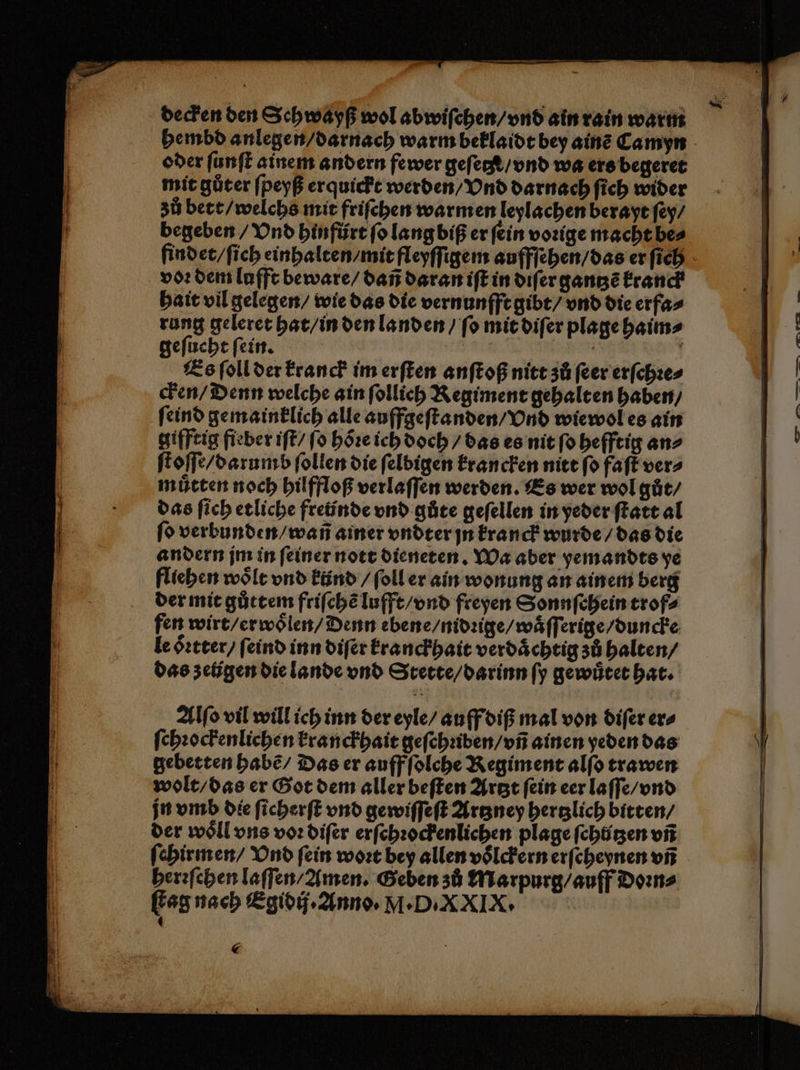 decken den Schwayß wol abwiſchen/vnd ain rain warm
hembd anlegen/darnach warm beklaidt bey ainē Camyn
oder ſunſt ainem andern fewer geſetzt/vnd wa ers begeret
mit gůter ſpeyß erquickt werden/Vnd darnach ſich wider
zů bett/welchs mit friſchen warmen leylachen berayt ſey/
begeben/Vnd hinfürt ſo lang biß er ſein voꝛige macht be⸗
findet/ſich einhalten/mit fleyſſigem auffſehen/das er ſich
voꝛ dem lufft beware/dañ daran iſt in diſer gantzē kranck
hait vil gelegen/wie das die vernunfft gibt/vnd die erfa⸗
rung geleret hat/in den landen/ſo mit diſer plage haim⸗
geſucht ſein.
Es ſoll der kranck im erſten anſtoß nitt zů ſeer erſchꝛe⸗
cken/Denn welche ain ſollich Regiment gehalten haben/
ſeind gemainklich alle auffgeſtanden/Vnd wiewol es ain
gifftig fieber iſt/ſo hôꝛe ich doch/das es nit ſo hefftig an⸗
ſtoſſe/darumb ſollen die ſelbigen krancken nitt ſo faſt ver⸗
mütten noch hilffloß verlaſſen werden. Es wer wol gůt/
das ſich etliche freünde vnd gůte geſellen in yeder ſtatt al
ſo verbunden/wañ ainer vndter jn kranck wurde/das die
andern jm in ſeiner nott dieneten. Wa aber yemandts ye
fliehen woͤlt vnd künd/ſoll er ain wonung an ainem berg
der mit gůttem friſchē lufft/vnd freyen Sonnſchein trof⸗
fen wirt/erwoͤlen/Denn ebene/nidꝛige/waͤſſerige/duncke
le oͤꝛtter/ſeind inn diſer kranckhait verdaͤchtig zů halten/
das zeügen die lande vnd Stette/darinn ſy gewuͤtet hat.
Alſo vil will ich inn der eyle/auff diß mal von diſer er⸗
ſchꝛockenlichen kranckhait geſchꝛiben/vñ ainen yeden das
gebetten habē/Das er auff ſolche Regiment alſo trawen
wolt/das er Got dem aller beſten Artzt ſein eer laſſe/vnd
jn vmb die ſicherſt vnd gewiſſeſt Artzney hertzlich bitten/
der woͤll vns voꝛ diſer erſchꝛockenlichen plage ſchützen vñ
ſchirmen/Vnd ſein woꝛt bey allen voͤlckern erſcheynen vñ
herꝛſchen laſſen/Amen. Geben zů Marpurg/auff Doꝛn⸗
ſtag nach Egidij. Anno. M.D.XXIX.